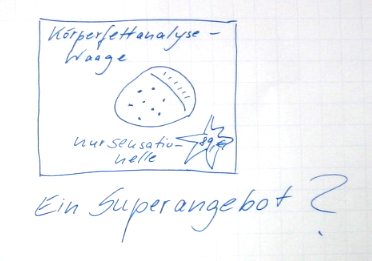 Körperfettanalyse-
Waage
nur sensatio-
nelle
Ein Superangebot?